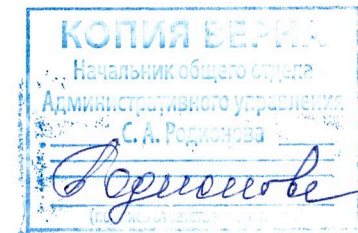 КОПИЯ ВЕРНА
Начальник общего отдела
Административного управления
С. А. Родионова
Родионова